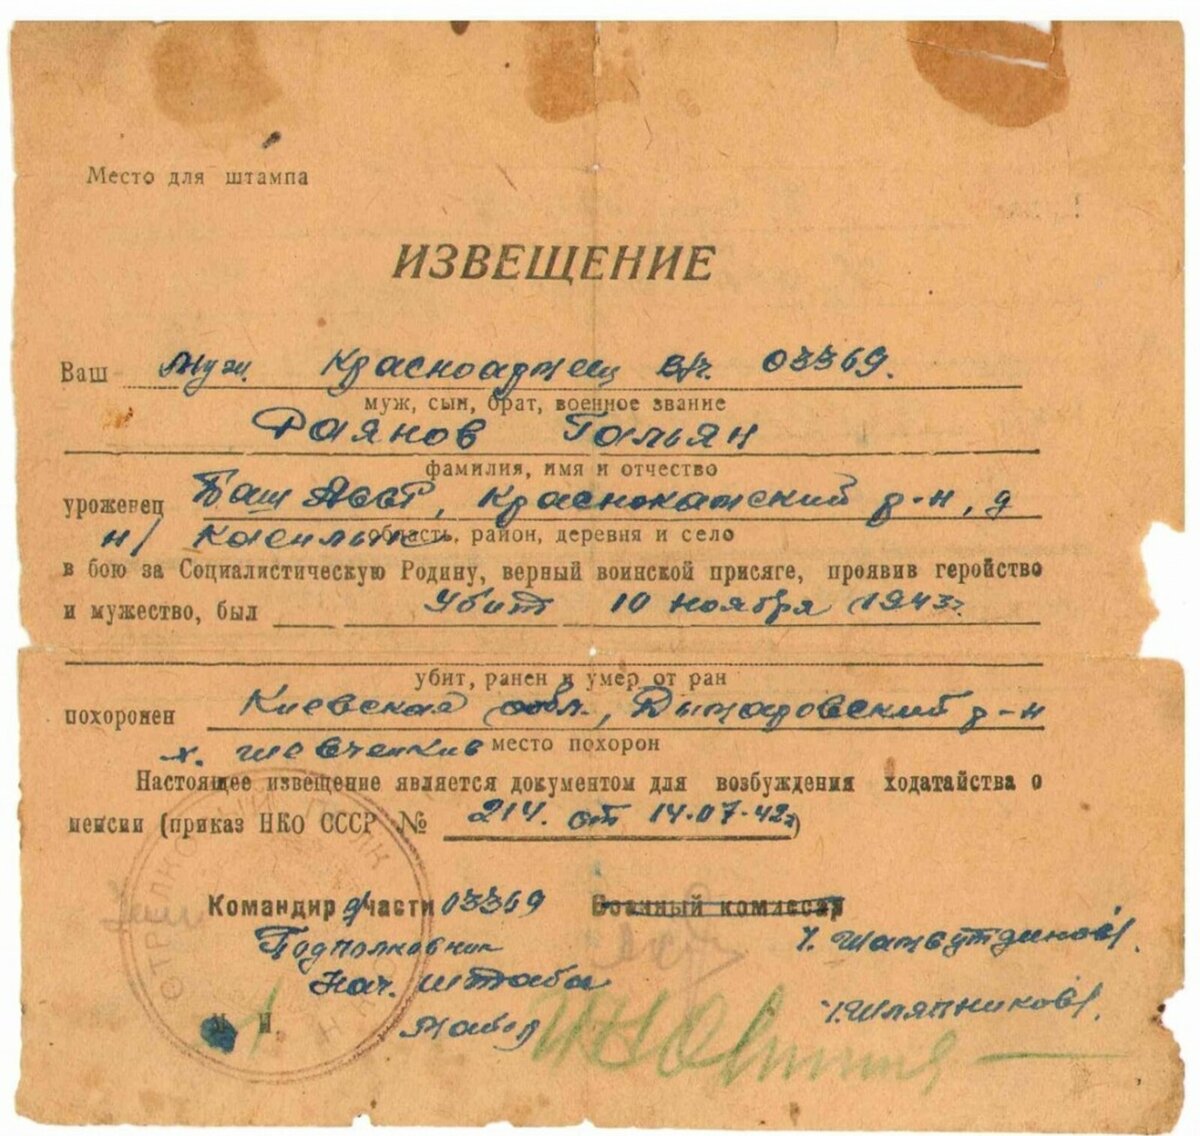 Место для штампа
ИЗВЕЩЕНИЕ
Ваш муж Красноармеец в/ч. 03369.
муж, сын, брат, военное звание
Раянов Гальян
фамилия, имя и отчество
уроженец Баш АССР, Краснокамский р-н, д
н/ Касильяс область, район, деревня и село
в бою за Социалистическую Родину, верный воинской присяге, проявив геройство
и мужество, был Убит 10 ноября 1943г.
убит, ранен и умер от ран
похоронен Киевская обл., Дымаровский р-н
х. Шевченкив место похорон
Настоящее извещение является документом для возбуждения ходатайства о
пенсии (приказ НКО СССР № 214. от 14.07.42г)
СТРЕЛКОВЫЙ ПОЛК
Командир в/части 03369 Военный комиссар
Подполковник /. Шамсутдинов/.
Нач. штаба
М. П. Майор /.Шляпников/.